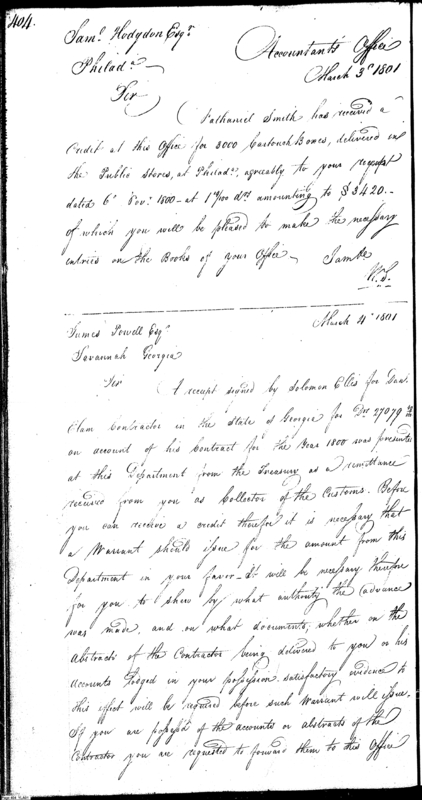 404.
Saml. Hodgdon Esqr.
Accountants Office
Philada.
March 3d 1801
Sir
Nathaniel Smith has received a
Credit at this Office for 3000 Cartouch Boxes, delivered in
the Public stores, at Philada. agreeably to your request
dated 6th Novr. 1800 - at 1 14/100 drs amounting to $3420.-
of which you will be pleased to make the necessary
entries on the Books of your Office - I am &c
W.S.
March 4th 1801
James Powell Esqr.
Savannah Georgia
Sir A receipt signed by Solomon Ellis for
Elam Contractor in the State of Georgia for Drs. 27079
on account of his Contract for the Year 1800 was presented
at this Department from the Treasury as a remittance
received from you as Collector of the Customs. Before
you can receive a credit therefor it is necessary that
a Warrant should issue for the amount from this
Department in your favor - It will be necessary therefore
for you to shew by what authority the advance
was made, and on what documents, whether on the
Abstracts of the Contractor being delivered to you or his
Accounts lodged in your possession. satisfactory evidence to
this effect will be required before such Warrant will issue.
If you are possess'd of the accounts or abstracts of the
Contractor you are requested to forward them to this Office